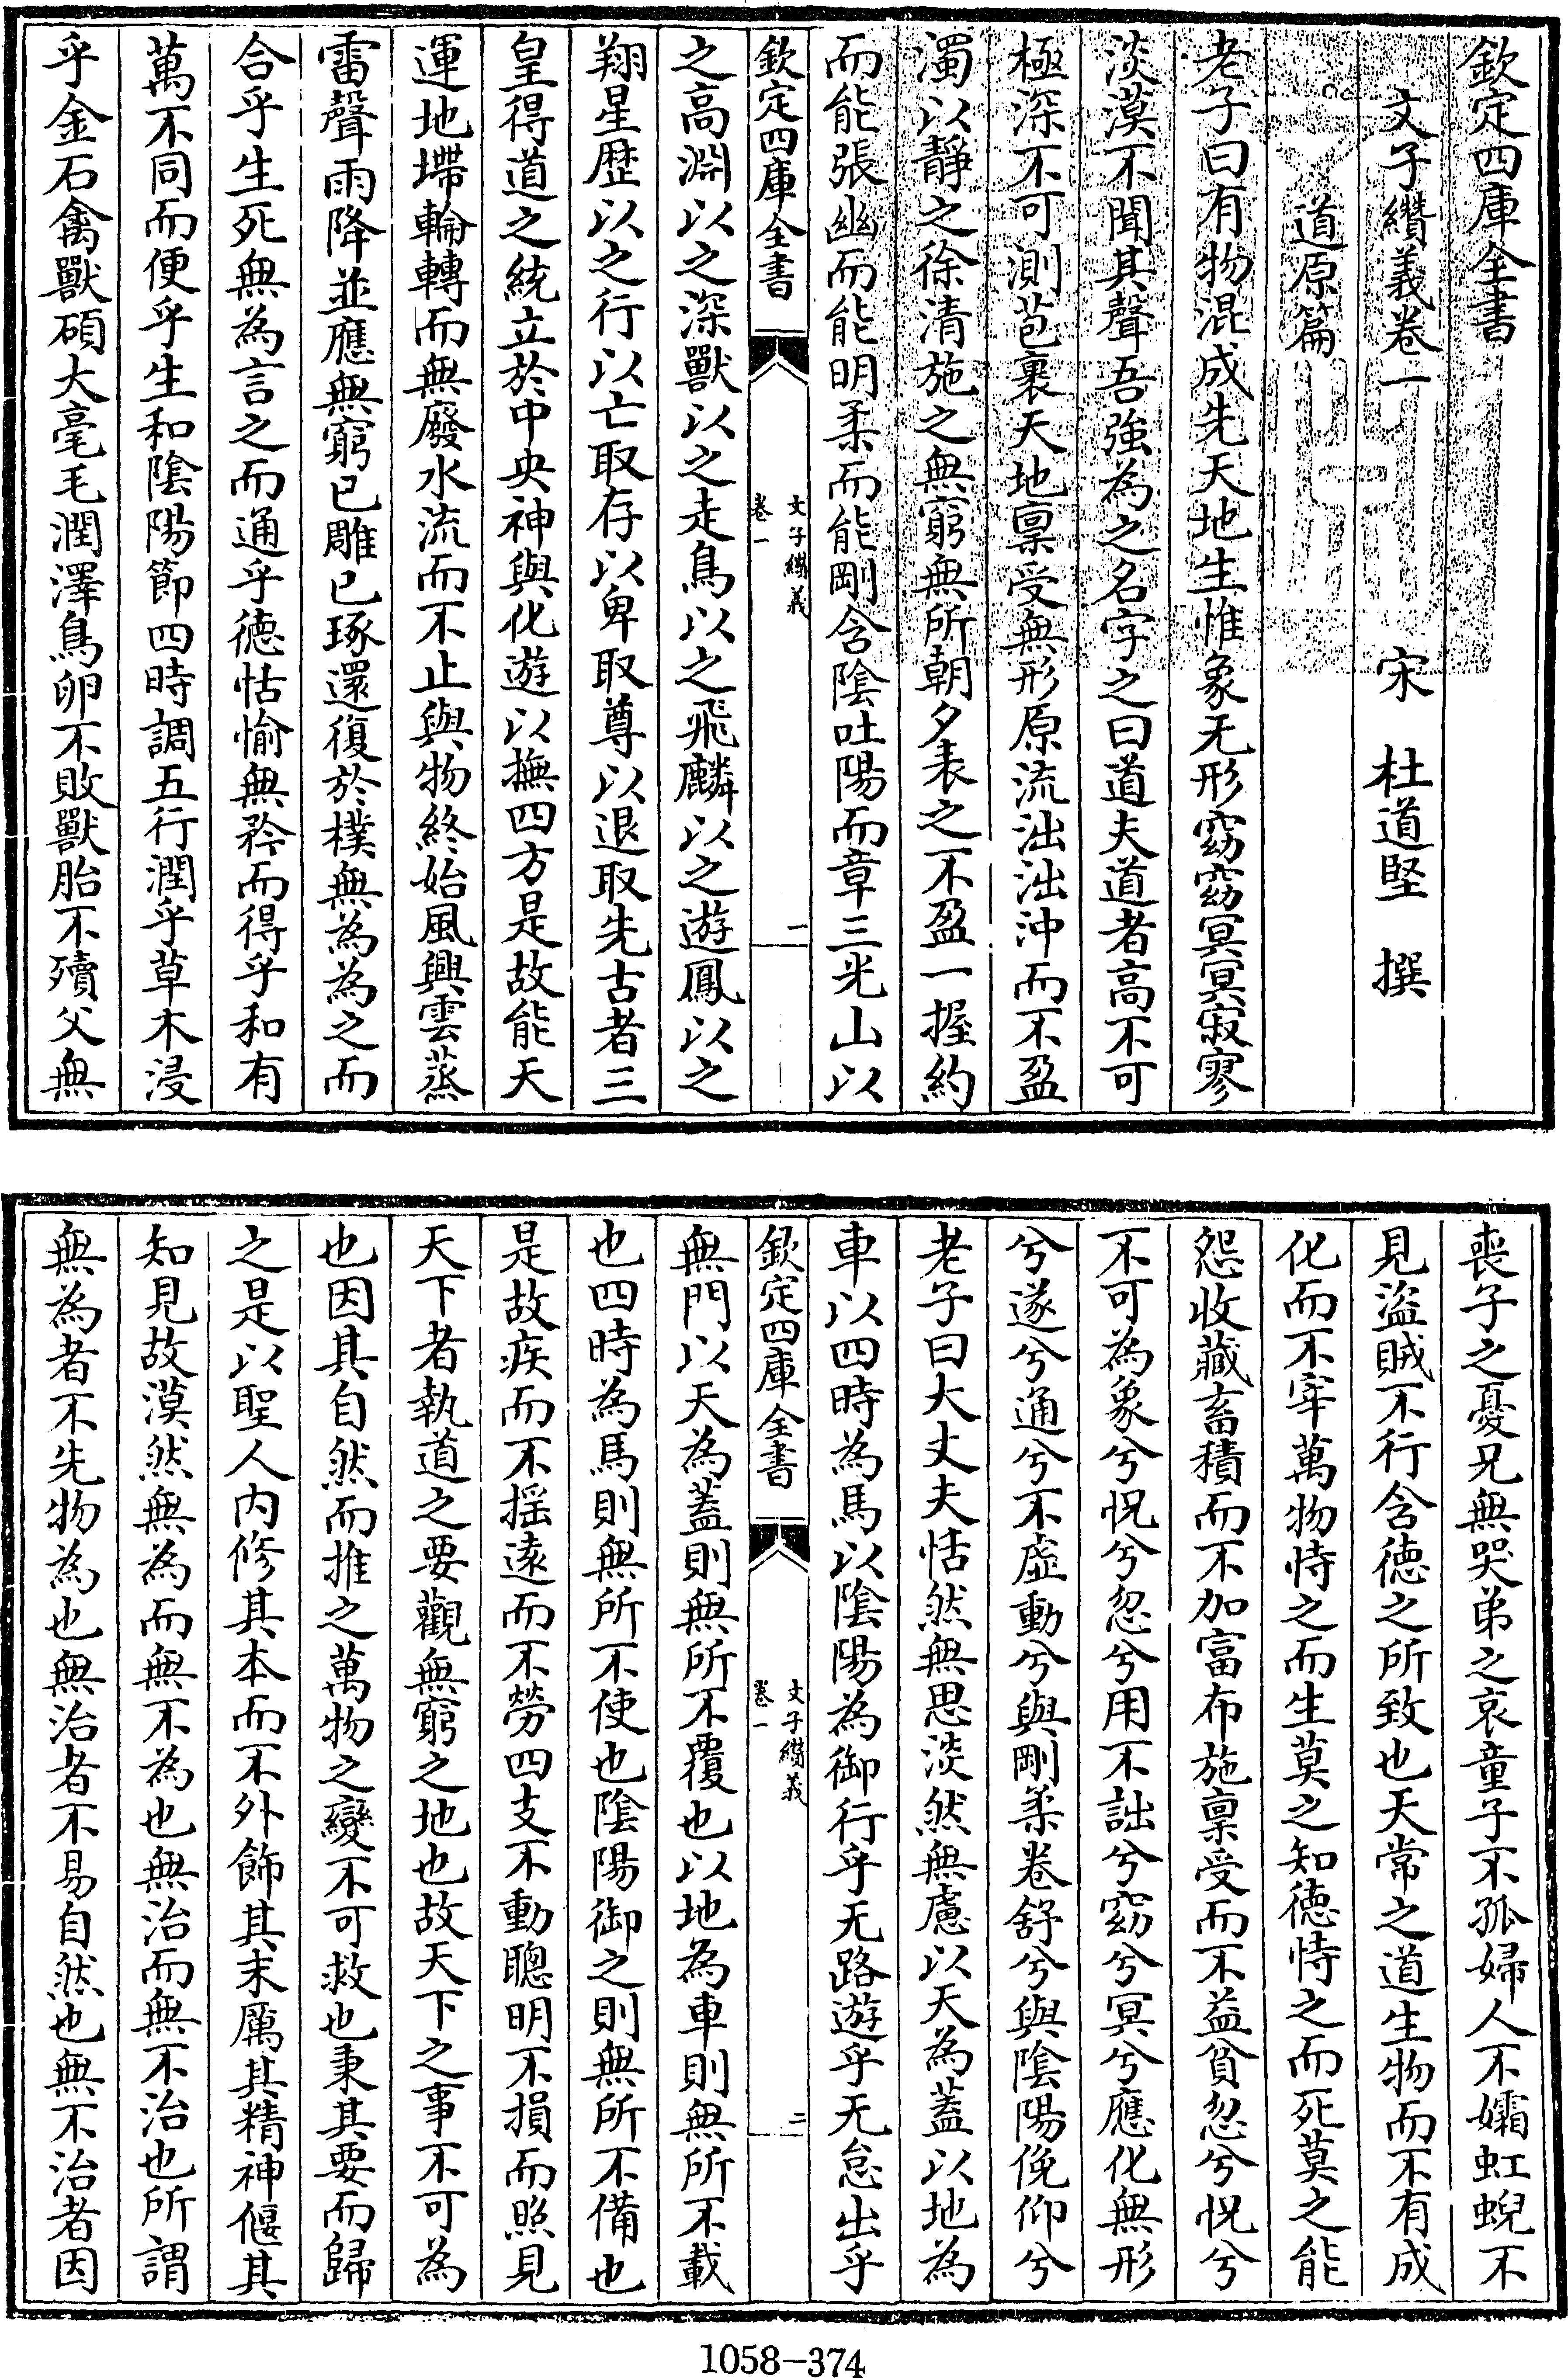 欽定四庫全書
文子纘義卷一
宋 杜道堅 撰
道原篇
老子曰有物混成先天地生惟象无形窈窈冥冥寂寥
淡漠不聞其聲吾強為之名字之曰道夫道者高不可
極深不可測苞裹天地稟受無形原流泏泏沖而不盈
濁以靜之徐清施之無窮無所朝夕表之不盈一握約
而能張幽而能明柔而能剛含陰吐陽而章三光山以
欽定四庫全書
文子纘義
卷一
一
之高淵以之深獸以之走鳥以之飛麟以之遊鳳以之
翔星歴以之行以亡取存以卑取尊以退取先古者三
皇得道之統立於中央神與化遊以撫四方是故能天
運地墆輪轉而無廢水流而不止與物終始風興雲蒸
雷聲雨降並應無窮已雕已琢還復於樸無為為之而
合乎生死無為言之而通乎徳恬愉無矜而得乎和有
萬不同而便乎生和陰陽節四時調五行潤乎草木浸
乎金石禽獸碩大毫毛潤澤鳥卵不敗獸胎不殰父無
喪子之憂兄無哭弟之哀童子不孤婦人不孀虹蜺不
見盜賊不行含徳之所致也天常之道生物而不有成
化而不宰萬物恃之而生莫之知徳恃之而死莫之能
怨收藏畜積而不加富布施稟受而不益貧忽兮怳兮
不可為象兮怳兮忽兮用不詘兮窈兮冥兮應化無形
兮遂兮通兮不虛動兮與剛柔卷舒兮與陰陽俛仰兮
老子曰大丈夫恬然無思淡然無慮以天為蓋以地為
車以四時為馬以陰陽為御行乎无路遊乎无怠出乎
欽定四庫全書
文子纘義
卷一
二
無門以天為蓋則無所不覆也以地為車則無所不載
也四時為馬則無所不使也陰陽御之則無所不備也
是故疾而不搖遠而不勞四支不動聰明不損而照見
天下者執道之要觀無窮之地也故天下之事不可為
也因其自然而推之萬物之變不可救也秉其要而歸
之是以聖人内修其本而不外飾其末厲其精神偃其
知見故漠然無為而無不為也無治而無不治也所謂
無為者不先物為也無治者不易自然也無不治者因
1058-374